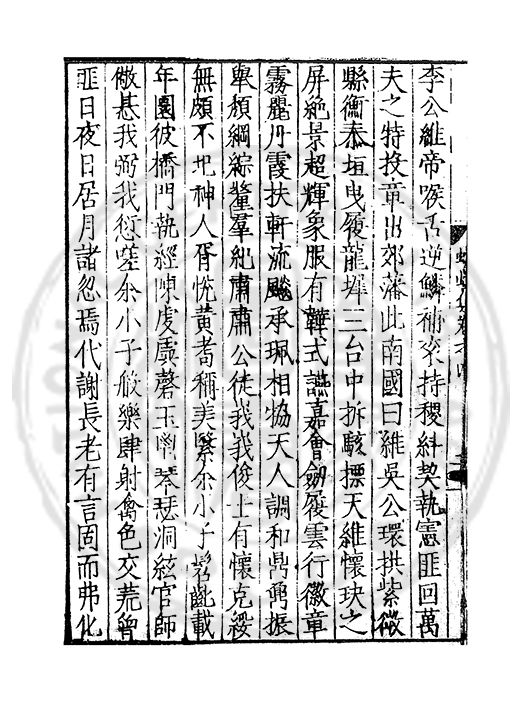 李公維帝喉舌逆鱗補袞持稷糾契執憲匪回萬
夫之特投章出郊藩此南國曰維吳公環拱紫微
縣衡泰垣曳履龍墀三台中拆駭摽天維懷玦之
屏絶景超輝象服有韡式讌嘉會劔履雲行徽章
霧麗丹霞扶軒流飈承珮相恊天人調和鼎鼐振
舉頹綱綜釐羣紀肅肅公徒我我俊士有懷克綏
無頗不圮神人胥悅黃耉稱美繄余小子髫齔載
年園彼橋門執經陳虔虡磬玉啣琴瑟洞絃官師
儆惎我弼我愆嗟余小子般樂肆射禽色交荒曾
匪日夜日居月諸忽焉代謝長老有言固而弗化